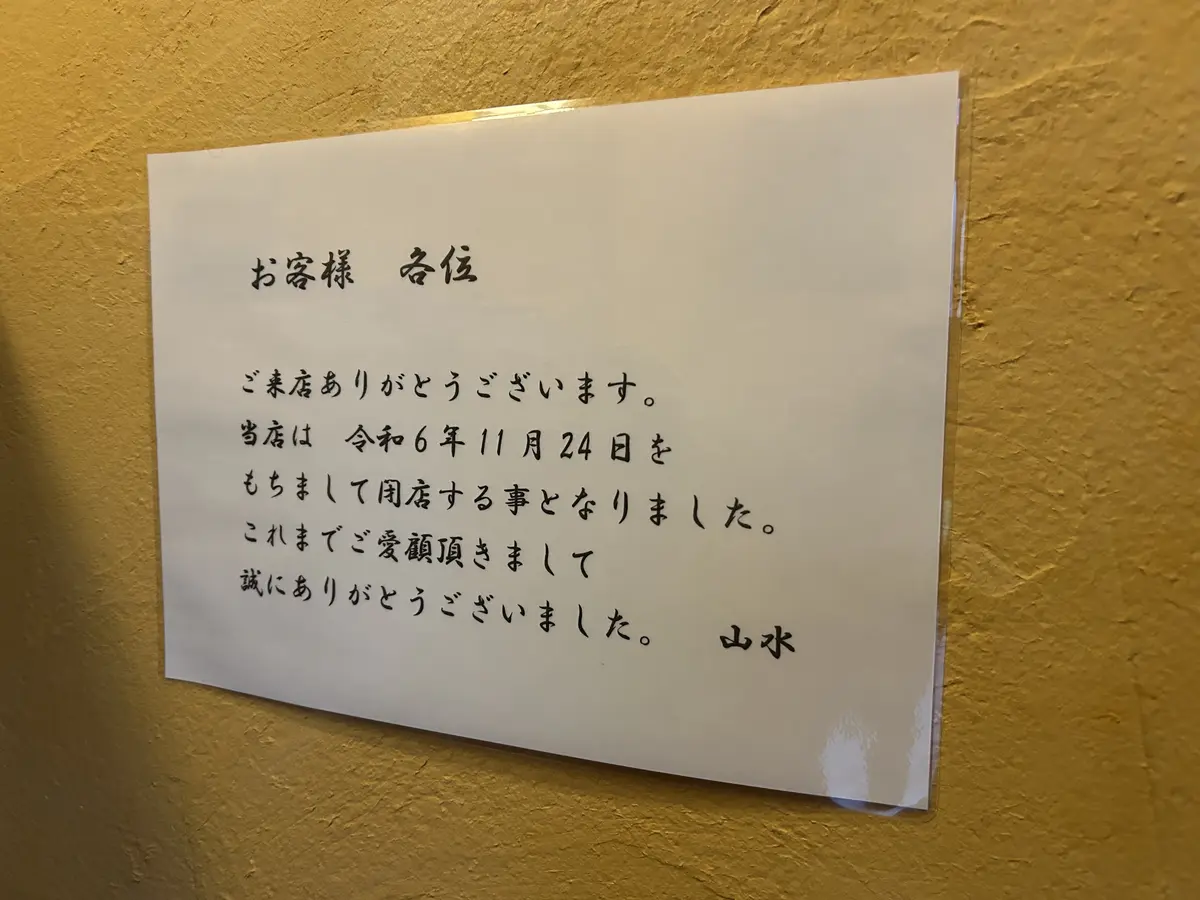 お客様　各位
ご来店ありがとうございます。
当店は　令和6年11月24日を
もちまして閉店する事となりました。
これまでご愛顧頂きまして
誠にありがとうございました。　山水